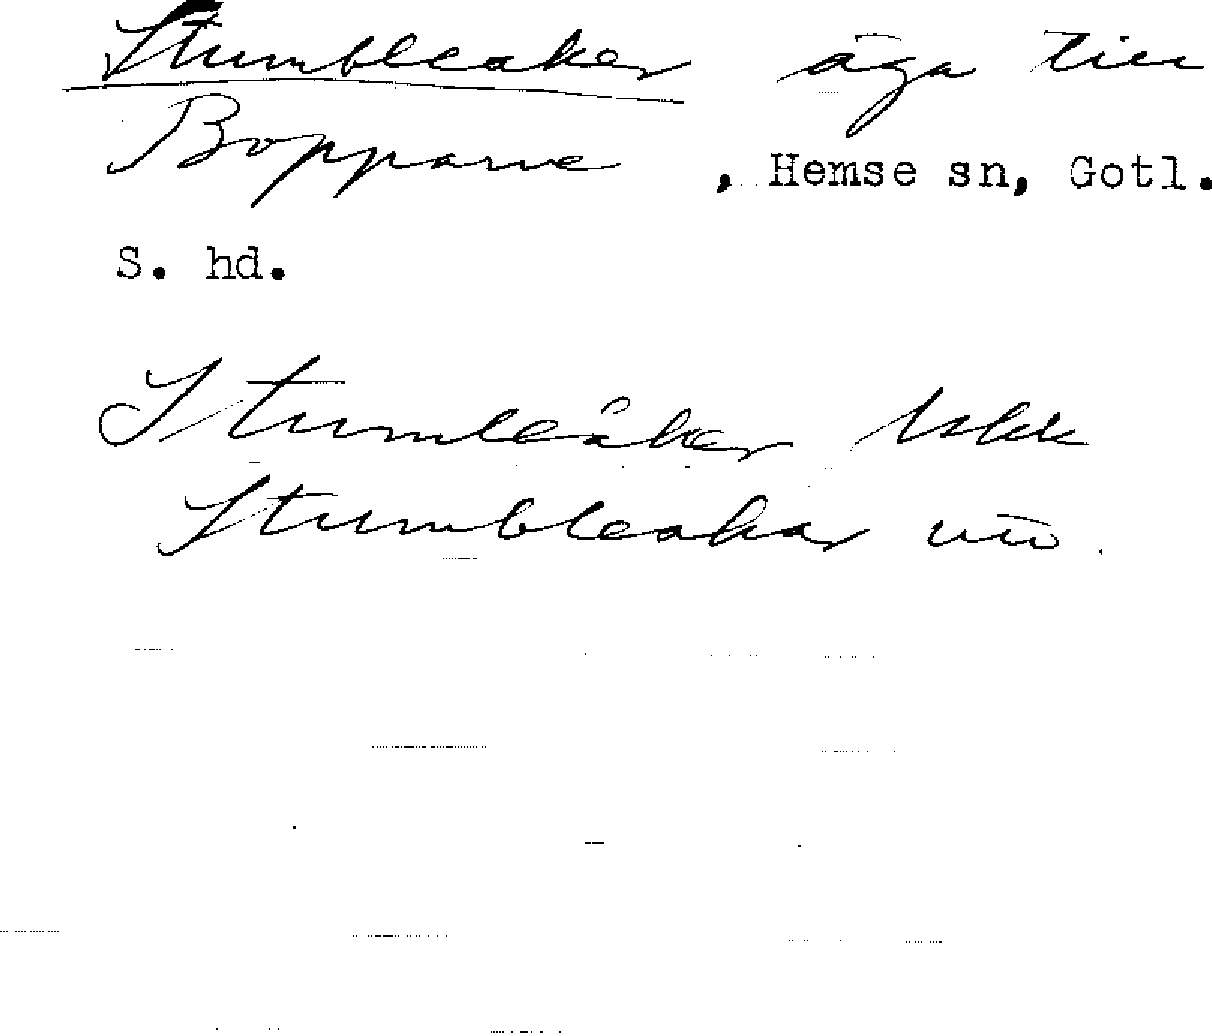 Stumbleaker äga till
Bopparve, Hemse sn, Gotl.
S. hd.
Stumleåker
Stumbleakar